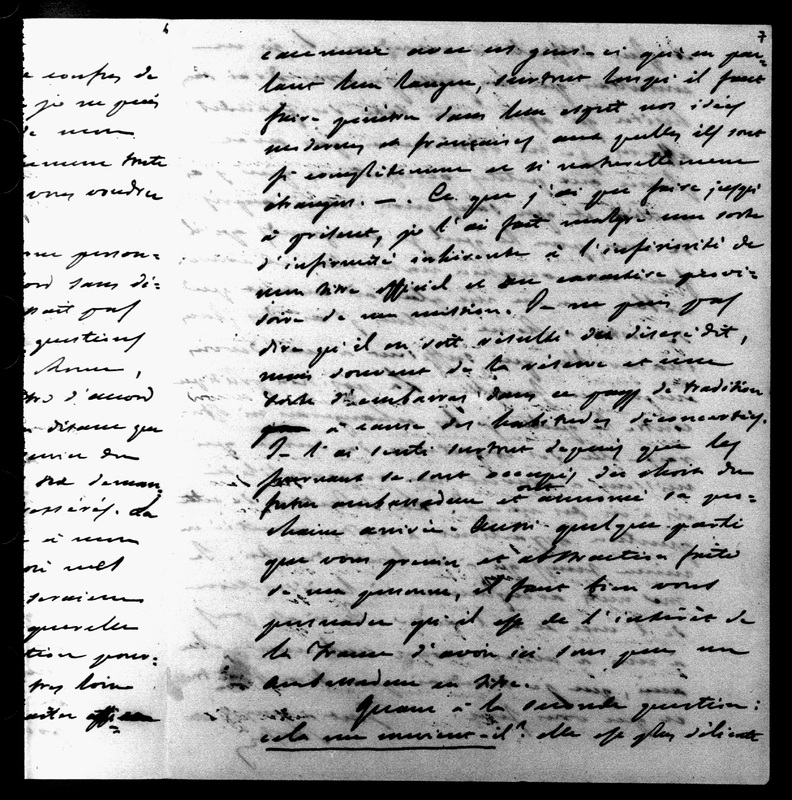 4
7
e confres de
je ne puis
de mon
vous voudrez
une person=
ord sans dé=
pas
questions
Anne,
d'accord
distance que
La
à mon
seraient
querelle
tion pour=
très loin
commune avec ces gens-ci qu'en par=
lant leur langue, surtout lorsqu'il faut
faire pénétrer dans leur esprit nos idées
modernes et françaises aux quelles ils sont
si complètement et si naturellement
étrangers. —. Ce que j'ai pu faire jusqu'
à présent, je l'ai fait malgré une sorte
d'infirmité inhérente à l'infériorité de
mon titre officiel et au caractère provi=
soire de ma mission. Je ne puis pas
dire qu'il en soit résulté du discrédit,
mais souvent de la réserve et une
sorte d'embarras dans ce pays de tradition
à cause des habitudes déconcertées.
Je l'ai senti surtout depuis que les
journaux se sont occupés du choix du
futur ambassadeur et ont annoncé sa pro=
chaine arrivée. Aussi quelque parti
que vous preniez et abstraction faite
de ma personne, il faut bien vous
persuader qu'il est de l'intérêt de
la France d'avoir ici sous peu un
ambassadeur en titre.
Quant à la seconde question:
cela me convient-il? elle est plus délicate